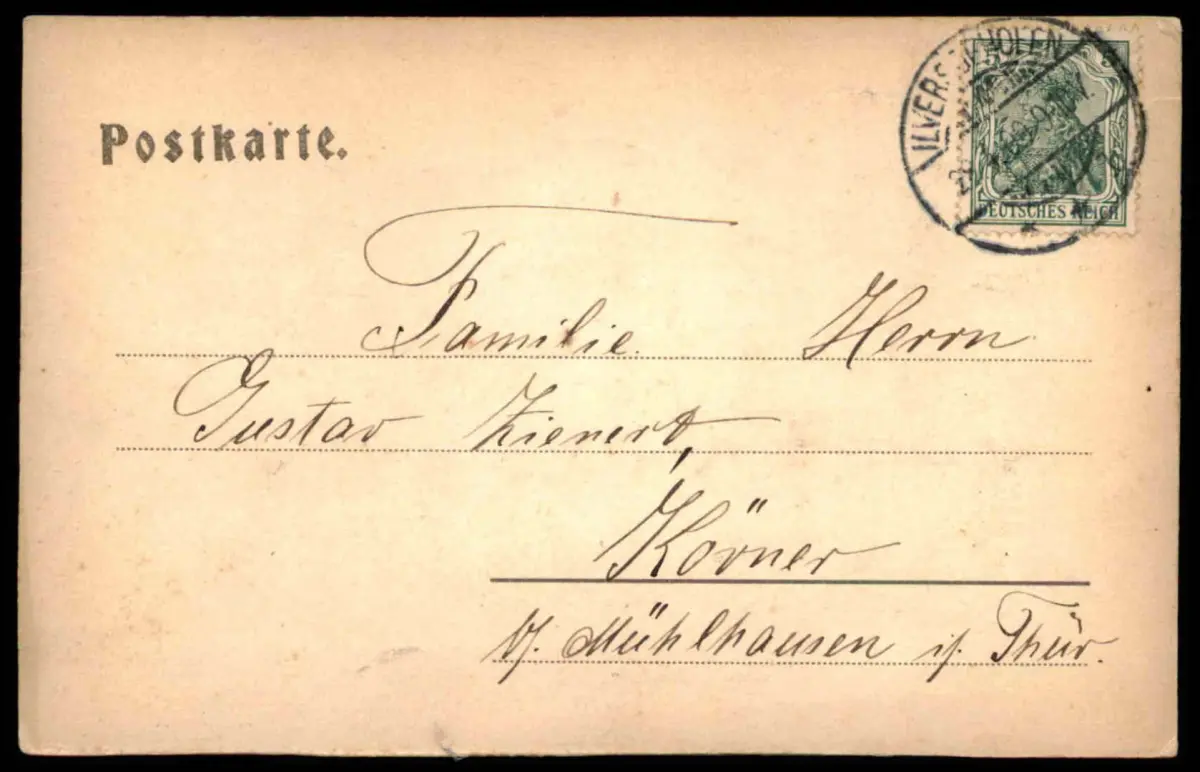 Postkarte.
ILVERSGEHOFEN
DEUTSCHES REICH
Familie Herrn
Gustav Zienert,
Körner
b/. Mühlhausen i/. Thür.